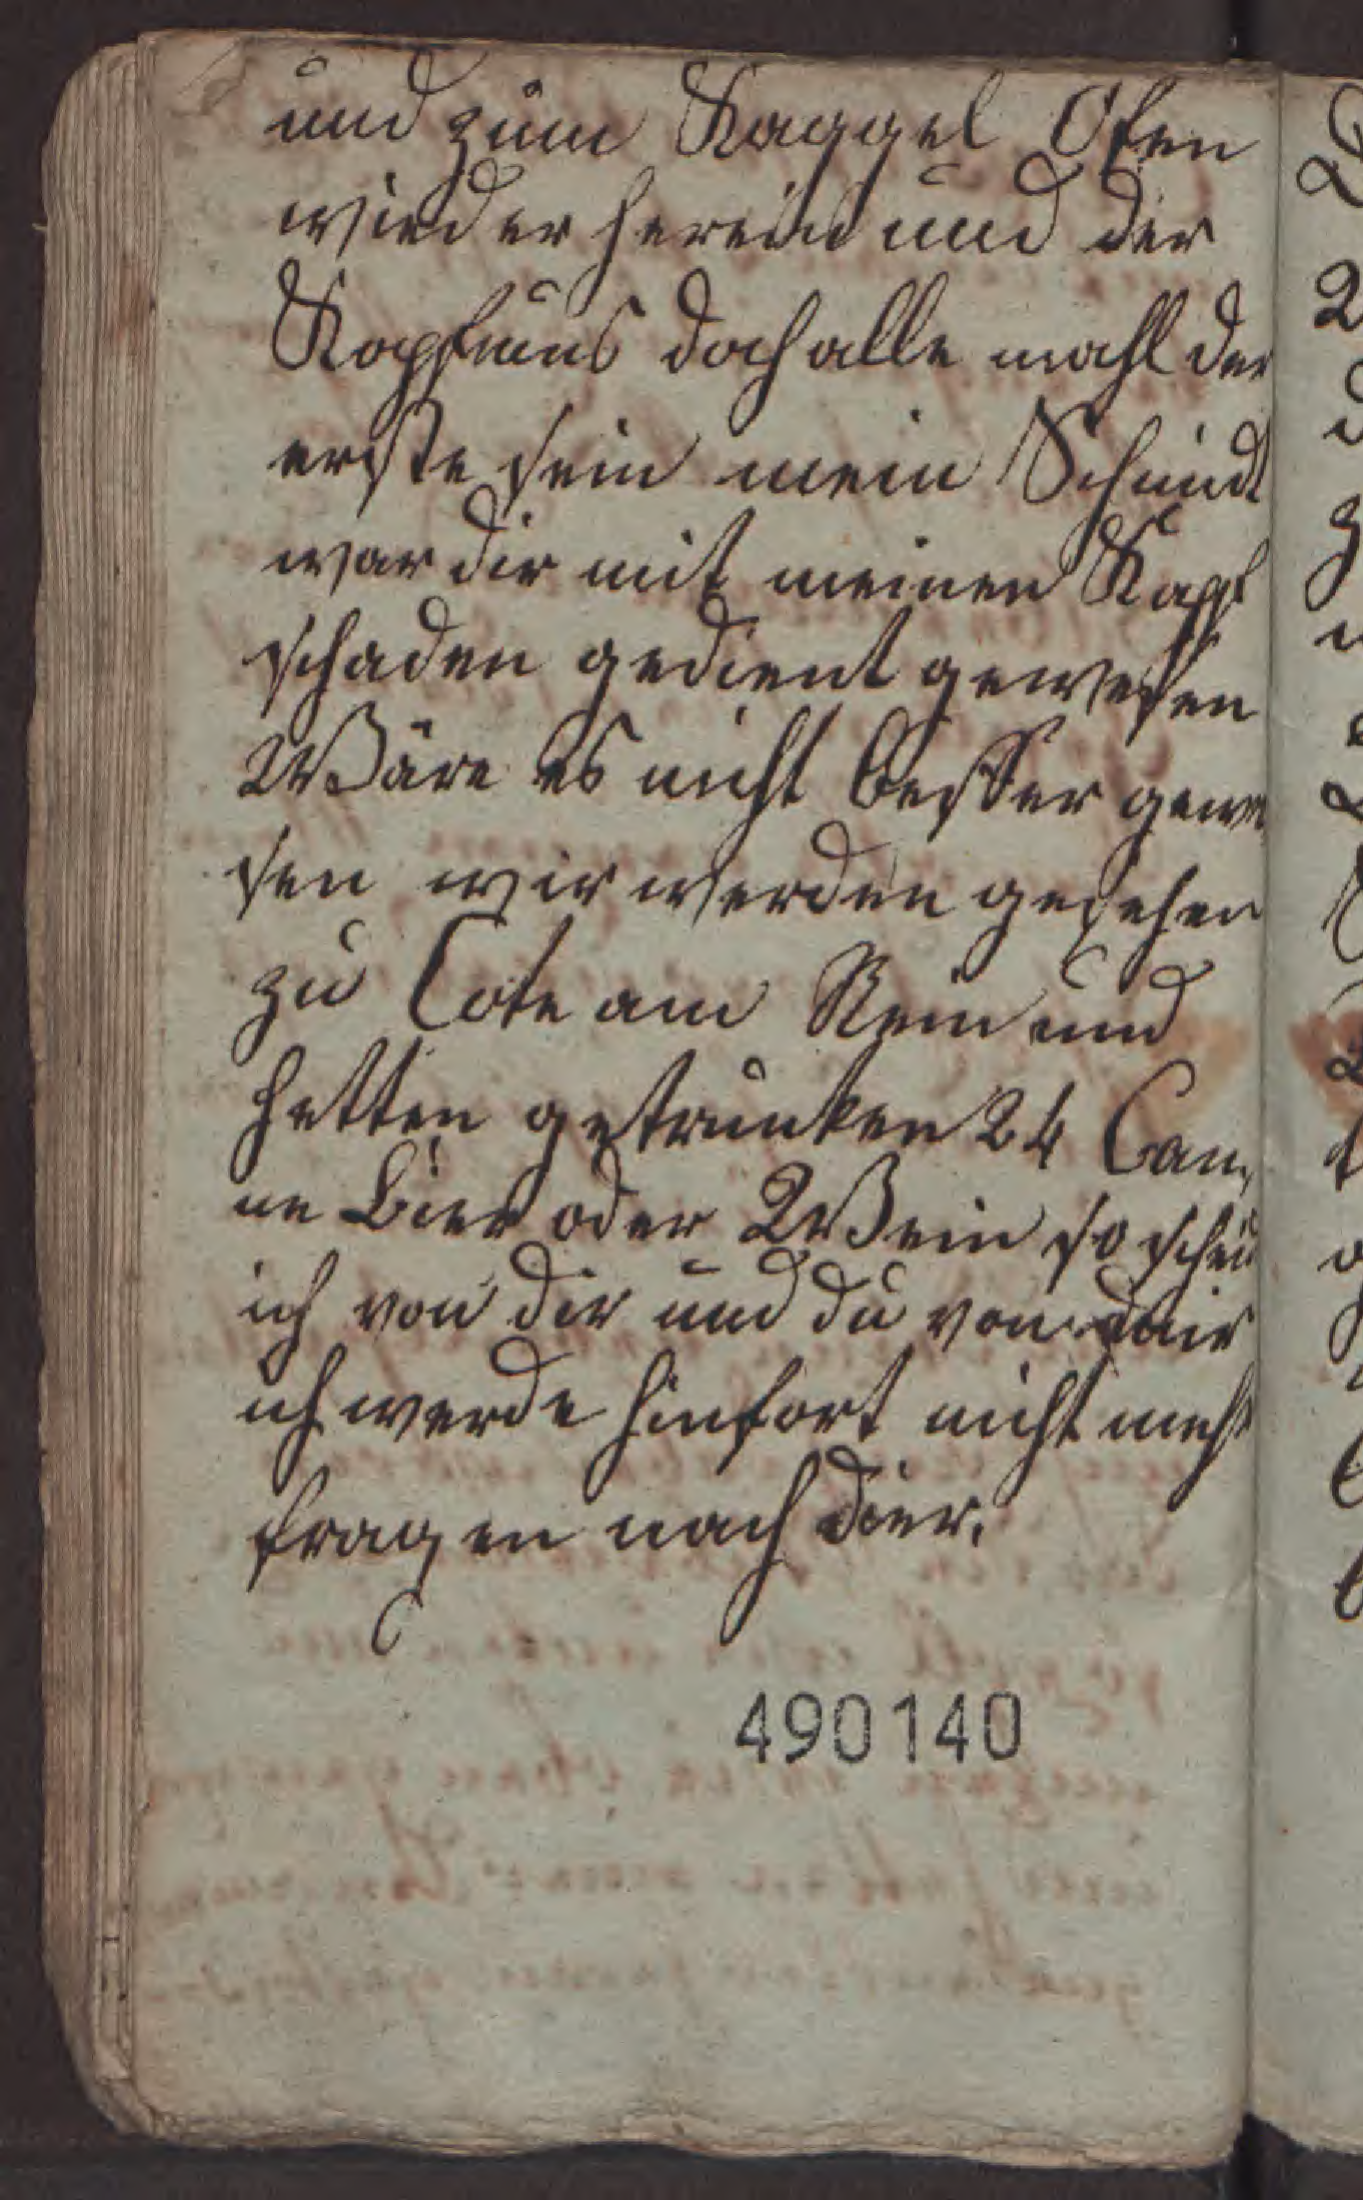 und zum Kaggel Ofen
wieder herein und der
Kopf mus doch alle mahl der
erste sein mein Schmidt
war dir mit meinen Kopf
schaden gedient gewesen
Wäre es nicht besser gewe
sen wir werden gesehen
zu Cöln am Rein und
hetten getrunken 24 Can,
ne Bier oder Wein so scheid
ich von dir und du von mir
ich werde hinfort nicht mehr
fragen nach dier.
490140